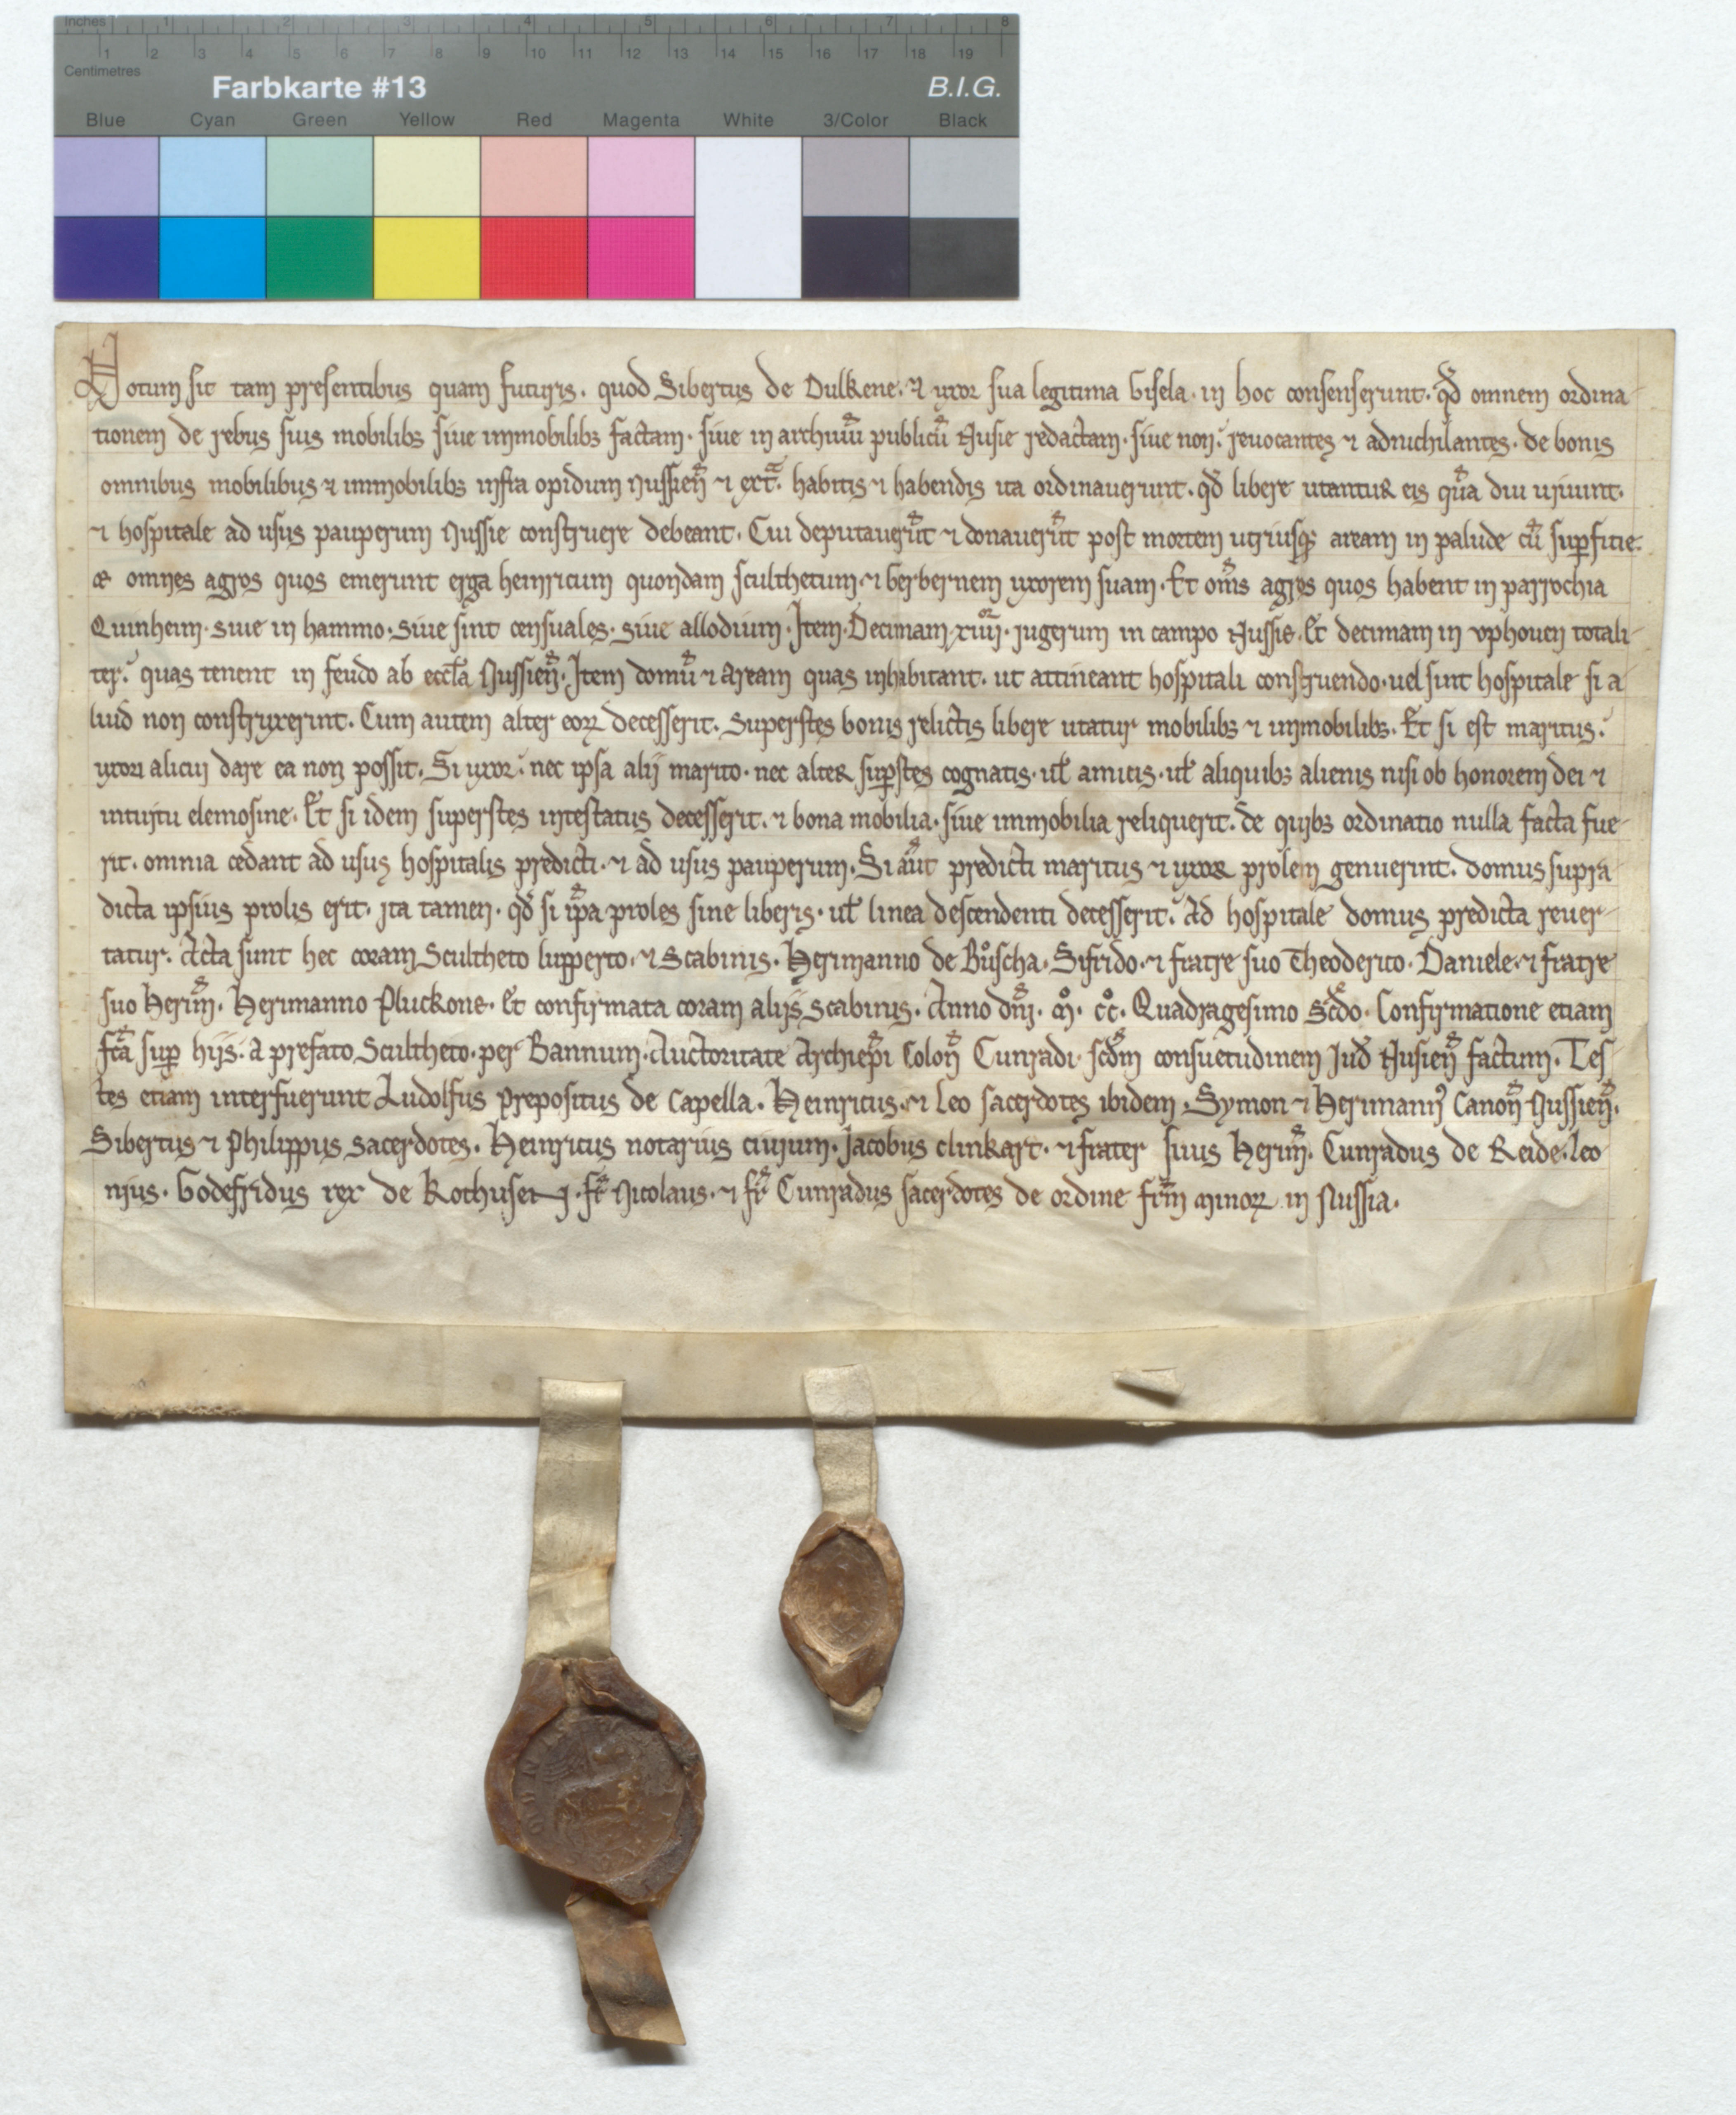 Inches 1 2 3 4 5 6 7 8
1 2 3 4 5 6 7 8 9 10 11 12 13 14 15 16 17 18 19
Centimetres
Farbkarte #13 B.I.G.
Blue Cyan Green Yellow Red Magenta White 3/Color Black
Notum sit tam presentibus quam futuris. quod Sibertus de Dulkene. ⁊ uxor sua legitima Gisela. in hoc consenserunt. qđ omnem ordina-
tionem de rebus suis mobilibꝫ siue immobilibꝫ factam. siue in archiuū publicū Nusie redactam. siue non. reuocantes ⁊ adnichilantes. de bonis
omnibus mobilibus ⁊ immobilibꝫ infra opidum Nussien̄ ⁊ ext̄. habitis ⁊ habendis ita ordinauerunt. qđ libere utantur eis q̄a diu uiuunt.
⁊ hospitale ad usus pauperum Nussie construere debeant. Cui deputauerūt ⁊ donauerūt post mortem utriusqꝫ aream in palude cū suꝑficie.
⁊ omnes agros quos emerunt erga heinricum quondam sculthetum ⁊ berbernem uxorem suam. Et om̄s agros quos habent in parrochia
Quinheim. siue in hammo. siue sint censuales. siue allodium. Item. Decimam. xiiij. iugerum in campo Nussie. Et decimam in vphouen totali-
ter. quas tenent in feudo ab eccl̄a Nussien̄. Item domū ⁊ aream quas inhabitant. ut attineant hospitali construendo. uel sint hospitale si a
liud non construxerint. Cum autem alter eoꝝ decesserit. Superstes bonis relictis libere utatur mobilibꝫ ⁊ immobilibꝫ. Et si est maritus.
uxori alicui dare ea non possit. Si uxor. nec ipsa alij marito. nec alter suꝑstes cognatis. ul̄ amicis. ul̄ aliquibꝫ alienis nisi ob honorem dei ⁊
intuitu elemosine. Et si idem superstes intestatus decesserit. ⁊ bona mobilia. siue immobilia reliquerit. de quibꝫ ordinatio nulla facta fue-
rit. omnia cedant ad usus hospitalis predicti. ⁊ ad usus pauperum. Si aūt predicti maritus ⁊ uxor prolem genuerint. domus supra-
dicta ipsius prolis erit. ita tamen. qđ si ip̄a proles sine liberis. ul̄ linea descendenti decesserit. Ad hospitale domus predicta reuer-
tatur. Acta sunt hec coram Scultheto lupperto. ⁊ Scabinis. Herimanno de Bůscha. Sifrido. ⁊ fratre suo Theoderico. Daniele. ⁊ fratre
suo Herim̄. Herimanno Pluckone. Et confirmata coram alijs Scabinis. Anno dn̄i. M̊. cc̊. Quadragesimo Scd̄o. Confirmatione etiam
fc̄a suꝑ hijs. a prefato Scultheto. per Bannum. Auctoritate Archiep̄i Colon̄ Cunradi. scd̄m consuetudinem Iud̄ Nusien̄ factum. Tes
tes etiam interfuerunt Ludolfus prepositus de Capella. Heinricus. ⁊ Leo sacerdotes ibidem. Symon ⁊ Herimanꝰ Canon̄ Nussien̄.
Sibertus ⁊ Philippus sacerdotes. Heinricus notarius ciuium. Jacobus clinkart. ⁊ frater suus Herim̄. Cunradus de Reide. leo
nius. Godefridus rex de Rothusen. fr̄ Nicolaus. ⁊ fr̄ Cunradus sacerdotes de ordine fr̄m minoꝝ in Nussia.